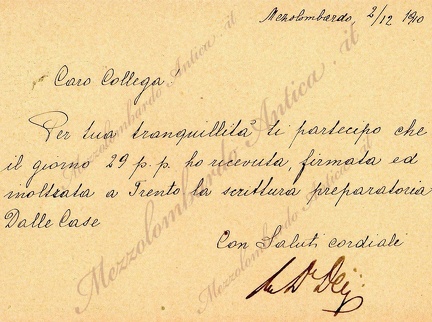 Mezzolombardo, 2/12 1910
Caro Collega
Per tua tranquillità ti partecipo che
il giorno 29 p. p. ho ricevuta, firmata ed
inoltrata a Trento la scrittura preparatoria
Dalle Case
Con Saluti cordiali
Mezzolombardo Antica.it
Mezzolombardo Antica.it
Mezzolombardo Antica.it